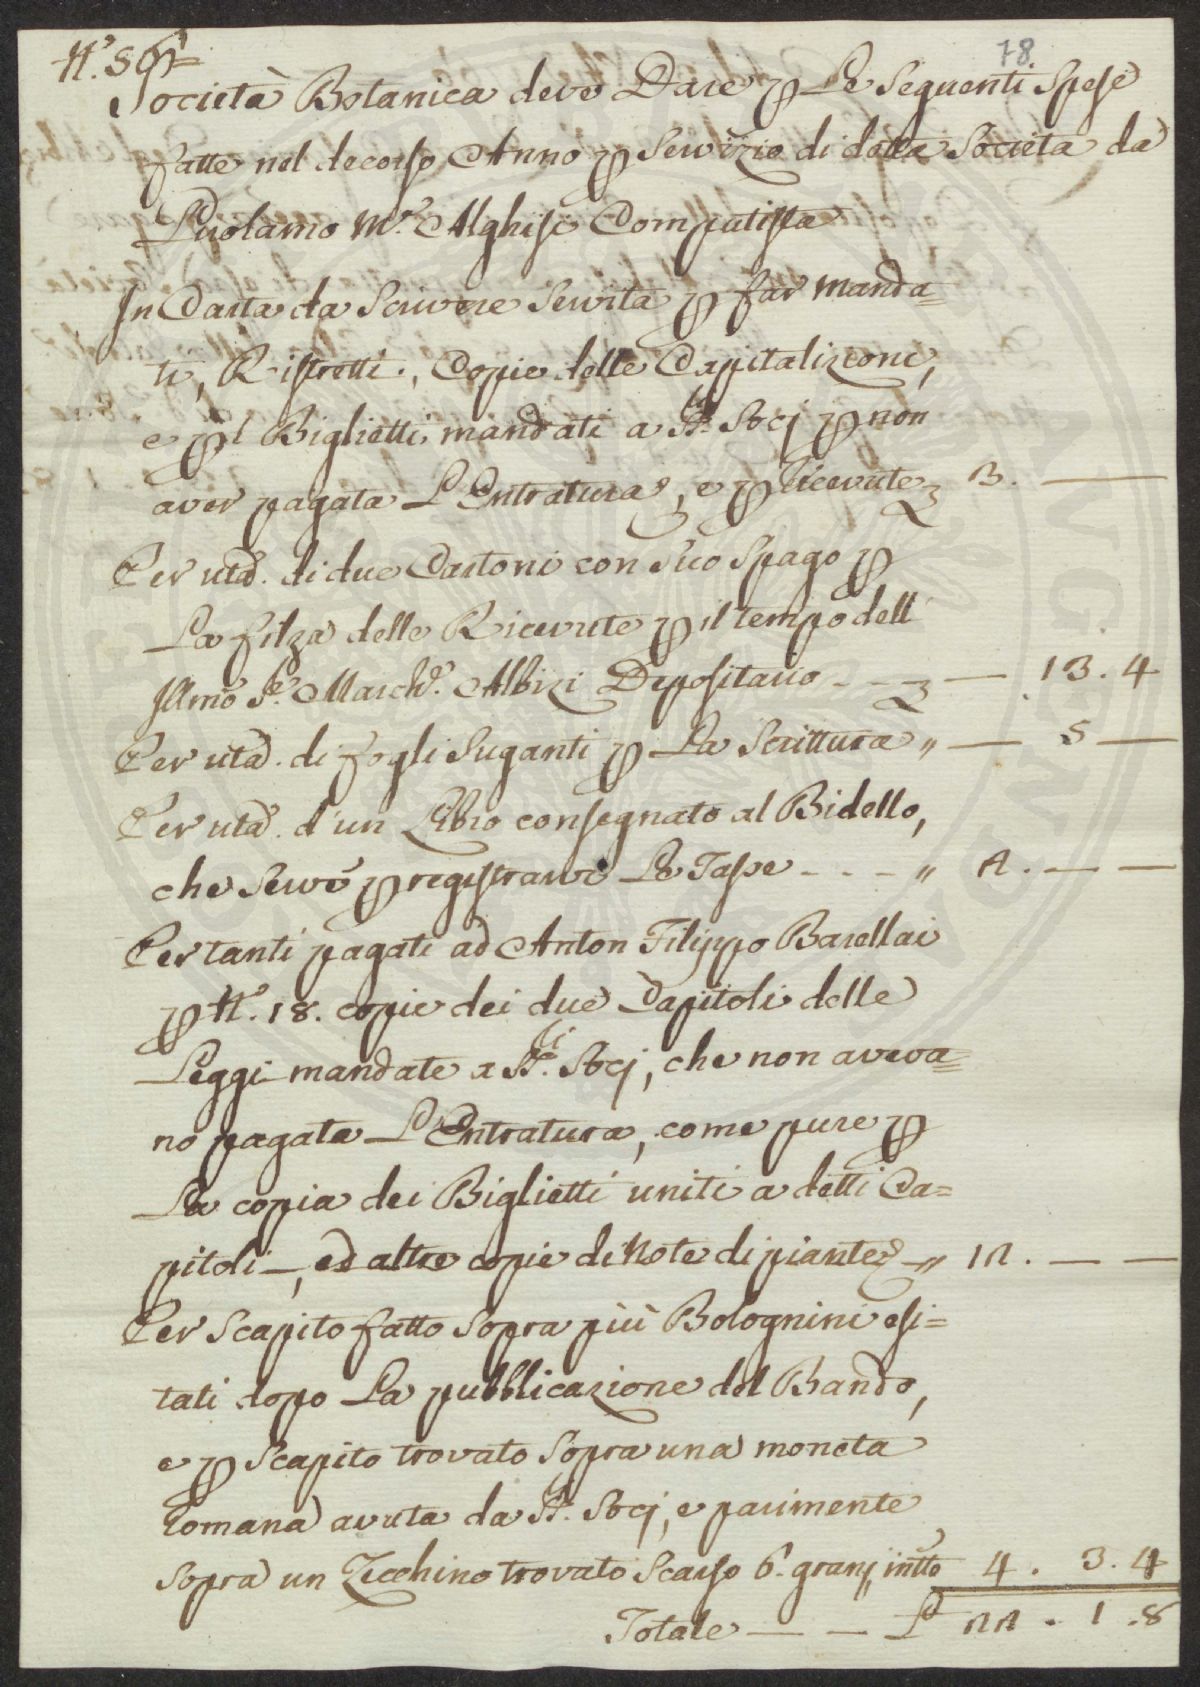 78
N.° 56
Società Botanica deve Dare p Le Seguenti Spese
fatte nel decorso Anno p Servizio di detta Societa da
Girolamo M.ª Alghisi Computista
In Carta da Scrivere Servita p far manda=
ti, Ristretti, Copie delle Capitalizioni,
e pl Biglietti mandati a SS.ri Socj p non
aver pagata L'Entratura, e p Ricevute 3. —
Per utā. di due Cartoni con suo Spago p
La filza delle Ricevute p il tempo dell'
Illmō Sr. March.e Albizi Depositario - - — 13. 4
Per utā. di fogli Suganti p La Scrittura „ — 5 —
Per utā. d'un Libro consegnato al Bidello,
che Serve p registrarvi Le Tasse - - - „ 2. — —
Per tanti pagati ad Anton Filippo Barellai
p N.° 18. copie dei due Capitoli delle
Leggi mandate a SS.ri Socj, che non aveva=
no pagata L'Entratura, come pure p
La copia dei Biglietti uniti a detti Ca=
pitoli, ed altre copie di Note di piante „ 12. — —
Per Scapito fatto Sopra più Bolognini esi=
tati dopo La pubblicazione del Bando,
e p Scapito trovato Sopra una moneta
Romana avuta da SS.ri Socj, e parimente
Sopra un Zecchino trovato Scarso 6. granj, in tto 4. 3. 4
Totale — — £ 22. 1. 8